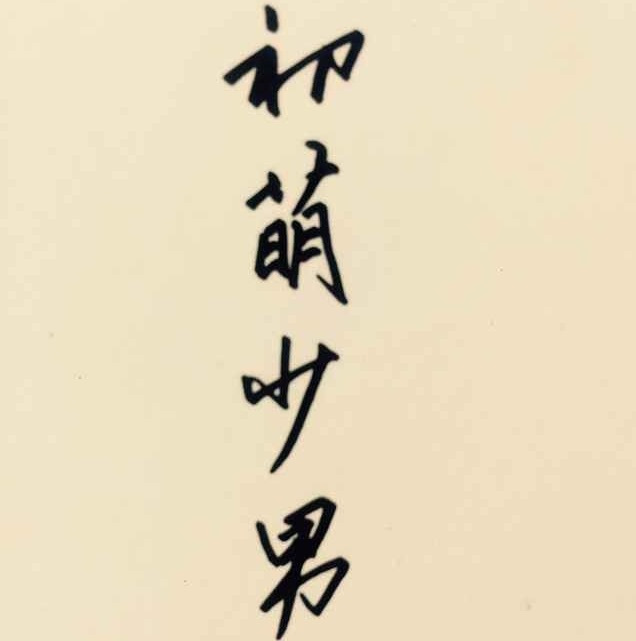 初萌少男